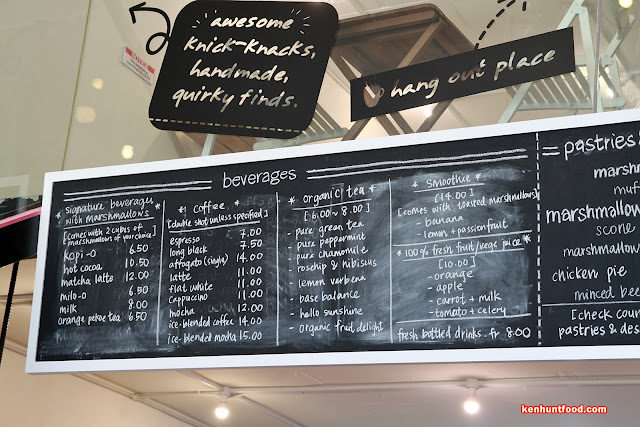 awesome
knick-knacks,
handmade,
quirky finds.
hang out place
beverages
signature beverages
with marshmallows
[comes with 2 cubes of
marshmallows of your choice]
kopi-o 6.50
hot cocoa 10.50
matcha latte 12.00
milo-o 6.50
milk 8.00
orange pekoe tea 6.50
coffee
[double shot unless specified]
espresso 7.00
long black 7.50
affogato (single) 14.00
latte 11.00
flat white 11.00
cappuccino 11.00
mocha 12.00
ice-blended coffee 14.00
ice-blended mocha 15.00
organic tea
[6.00 ~ 8.00]
- pure green tea
- pure peppermint
- pure chamomile
- rosehip & hibiscus
- lemon verbena
- base balance
- hello sunshine
- organic fruit delight
* smoothie *
[14.00]
[comes with toasted marshmallows]
- banana
- lemon + passionfruit
*100% fresh fruit/vege juice*
[10.00]
- orange
- apple
- carrot + milk
- tomato + celery
fresh bottled drinks. fr 8.00
= pastries
marshm
marshmallow
scone
marshmallow
chicken pie
minced bee
[check coun
pastries & des
kenhuntfood.com